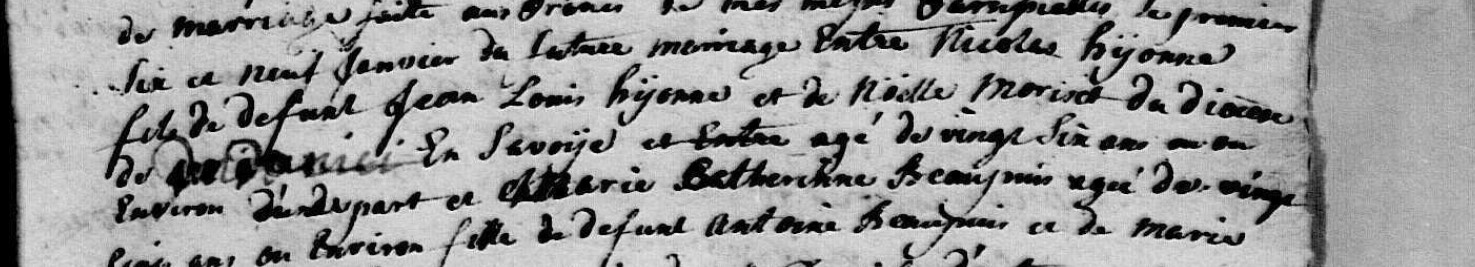 de marriage faite aux prones de mes messes parroissialles le premier
six et neuf Janvier du futur mariage Entre Nicolas hyonne
fils de defunt Jean Louis hyonne et de Nöelle Morisot du diocese
de En Savoÿe et Entre agé de vingt six ans ou en
Environ d'une part et Marie Catherinne Beaupuis agée de vingt
cinq ans ou Environ fille de defunt Antoine Beaupuis et de marie